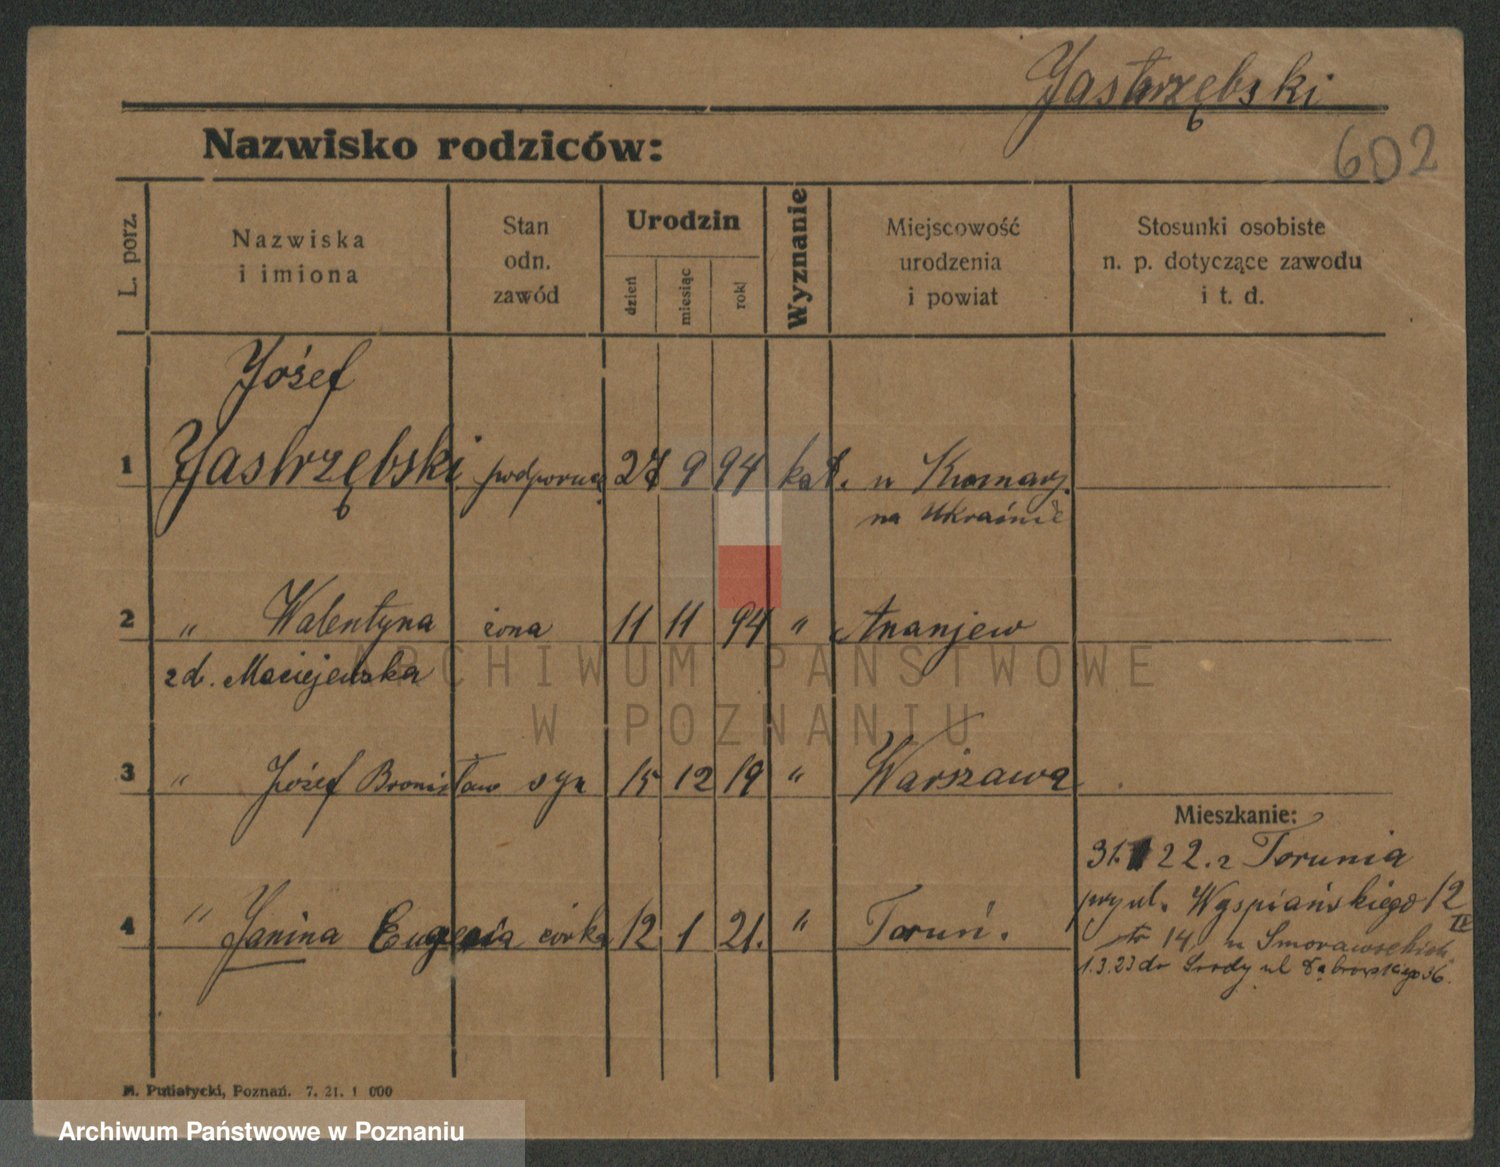 Jastrzębski
602
Nazwisko rodziców:
L. porz.
Nazwiska
i imiona
Stan
odn.
zawód
Urodzin
dzień
miesiąc
rok
Wyznanie
Miejscowość
urodzenia
i powiat
Stosunki osobiste
n. p. dotyczące zawodu
i t. d.
Józef
1 Jastrzębski podporucz 27 9 94 kat. w Kumary
na Ukrainie
2 " Walentyna żona 11 11 94 " Ananjew
zd. Maciejewska
3 " Józef Bronisław syn 15 12 19 " Warszawa
Mieszkanie:
31. 22. z Torunia
przy ul. Wyspiańskiego 12
4 " Janina Eugenia córka 12 1 21. " Toruń.
14 u Smorawskich
1.3.23 do Środy ul Dąbrowskiego 36.
M. Putiatycki, Poznań. 7. 21. 1 000
ARCHIWUM PAŃSTWOWE
W POZNANIU
Archiwum Państwowe w Poznaniu